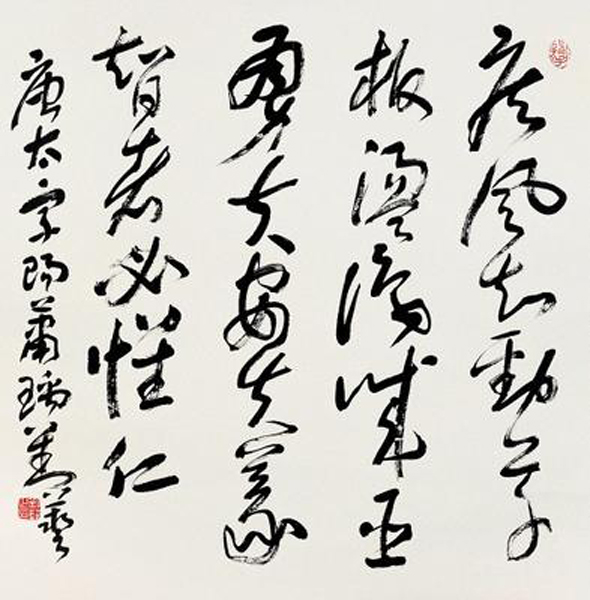 疾風知勁草
板盪識誠臣
勇夫安知義
智者必懷仁
唐太宗賜蕭瑀